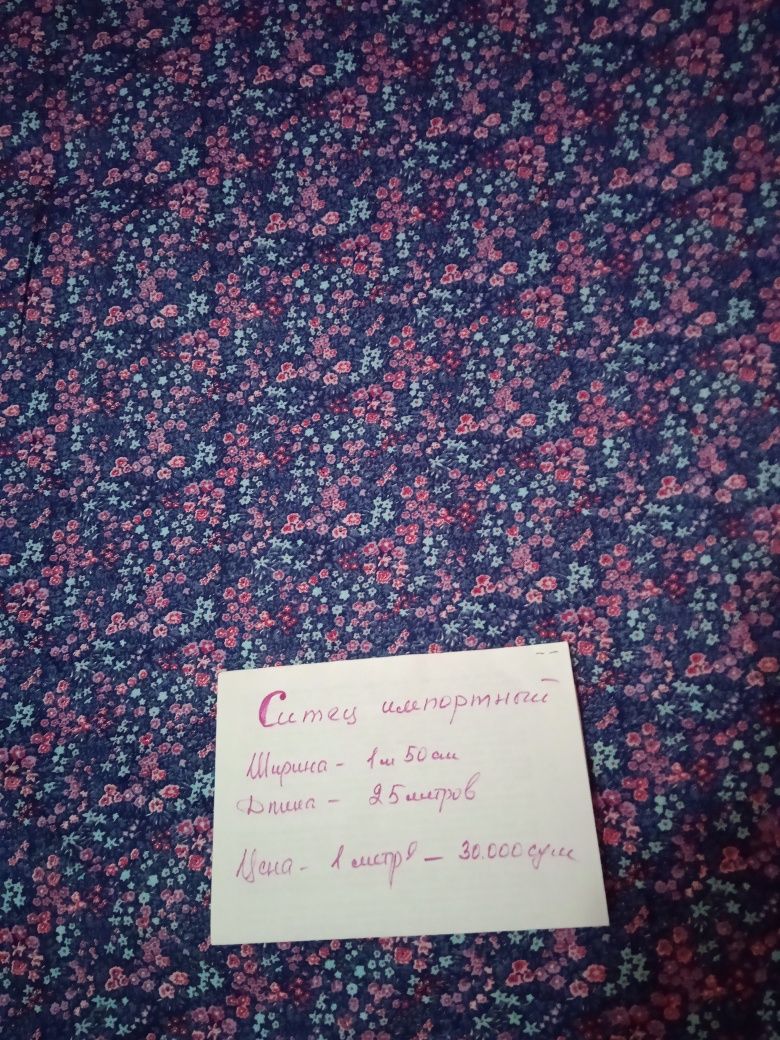 Ситец импортный
Ширина - 1м 50см
Длина - 25 метров
Цена - 1 метра - 30.000 сум